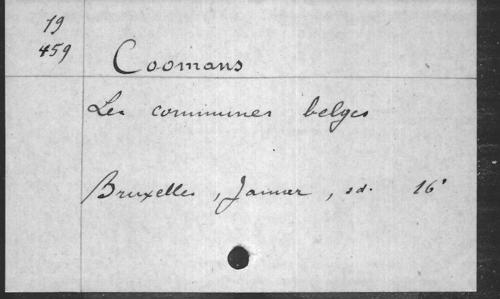 19
459
Coomans
Les communes belges
Bruxelles, Jamar, sd. 16°